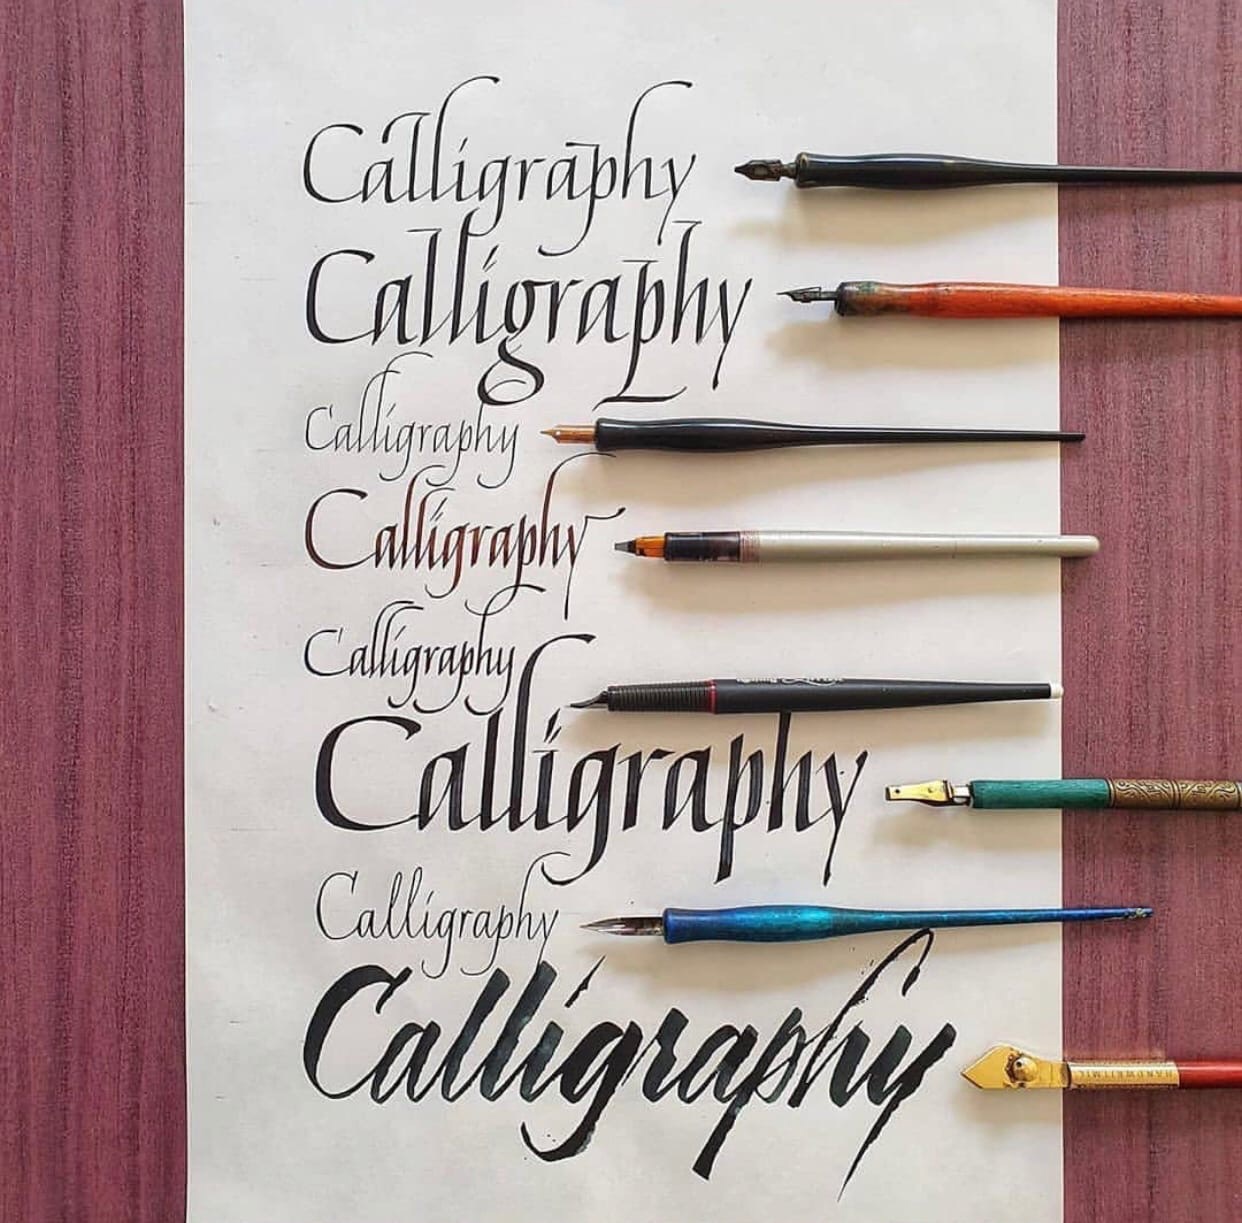 Calligraphy
Calligraphy
Calligraphy
Calligraphy
Calligraphy
Calligraphy
Calligraphy
Calligraphy
HANDWRITMIC